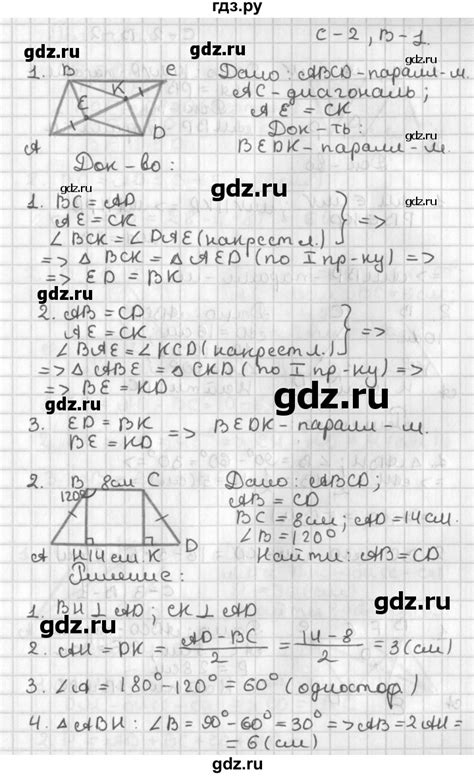 гдз.ру
С-2, В-1.
gdz.ru gdz.ru
1. B C Дано: ABCD - паралл-м.
K AC - диагональ;
E AE = CK
A D Док-ть:
BEDK - паралл-м.
Док-во:
gdz.ru gdz.ru
1. BC = AD
AE = CK
∠BCK = ∠DAE (накрест л.) } =>
=> △BCK = △AED (по I пр-ку) =>
=> ED = BK
gdz.ru gdz.ru
2. AB = CD
AE = CK
∠BAE = ∠KCD (накрест л.) } =>
=> △ABE = △CKD (по I пр-ку) =>
=> BE = KD
gdz.ru
3. ED = BK
BE = KD => BEDK - паралл-м.
gdz.ru gdz.ru
2. B 8см C Дано: ABCD;
120° AB = CD
BC = 8см, AD = 14см.
∠B = 120°
A H 14см. K D Найти: AB = CD
Решение:
gdz.ru
1. BH ⊥ AD; CK ⊥ AD
gdz.ru
2. AH = DK = (AD - BC)/2 = (14 - 8)/2 = 3 (см)
3. ∠A = 180° - 120° = 60° (одностор.)
4. △ABH: ∠B = 90° - 60° = 30° => AB = 2AH =
= 6 (см)
gdz.ru gdz.ru